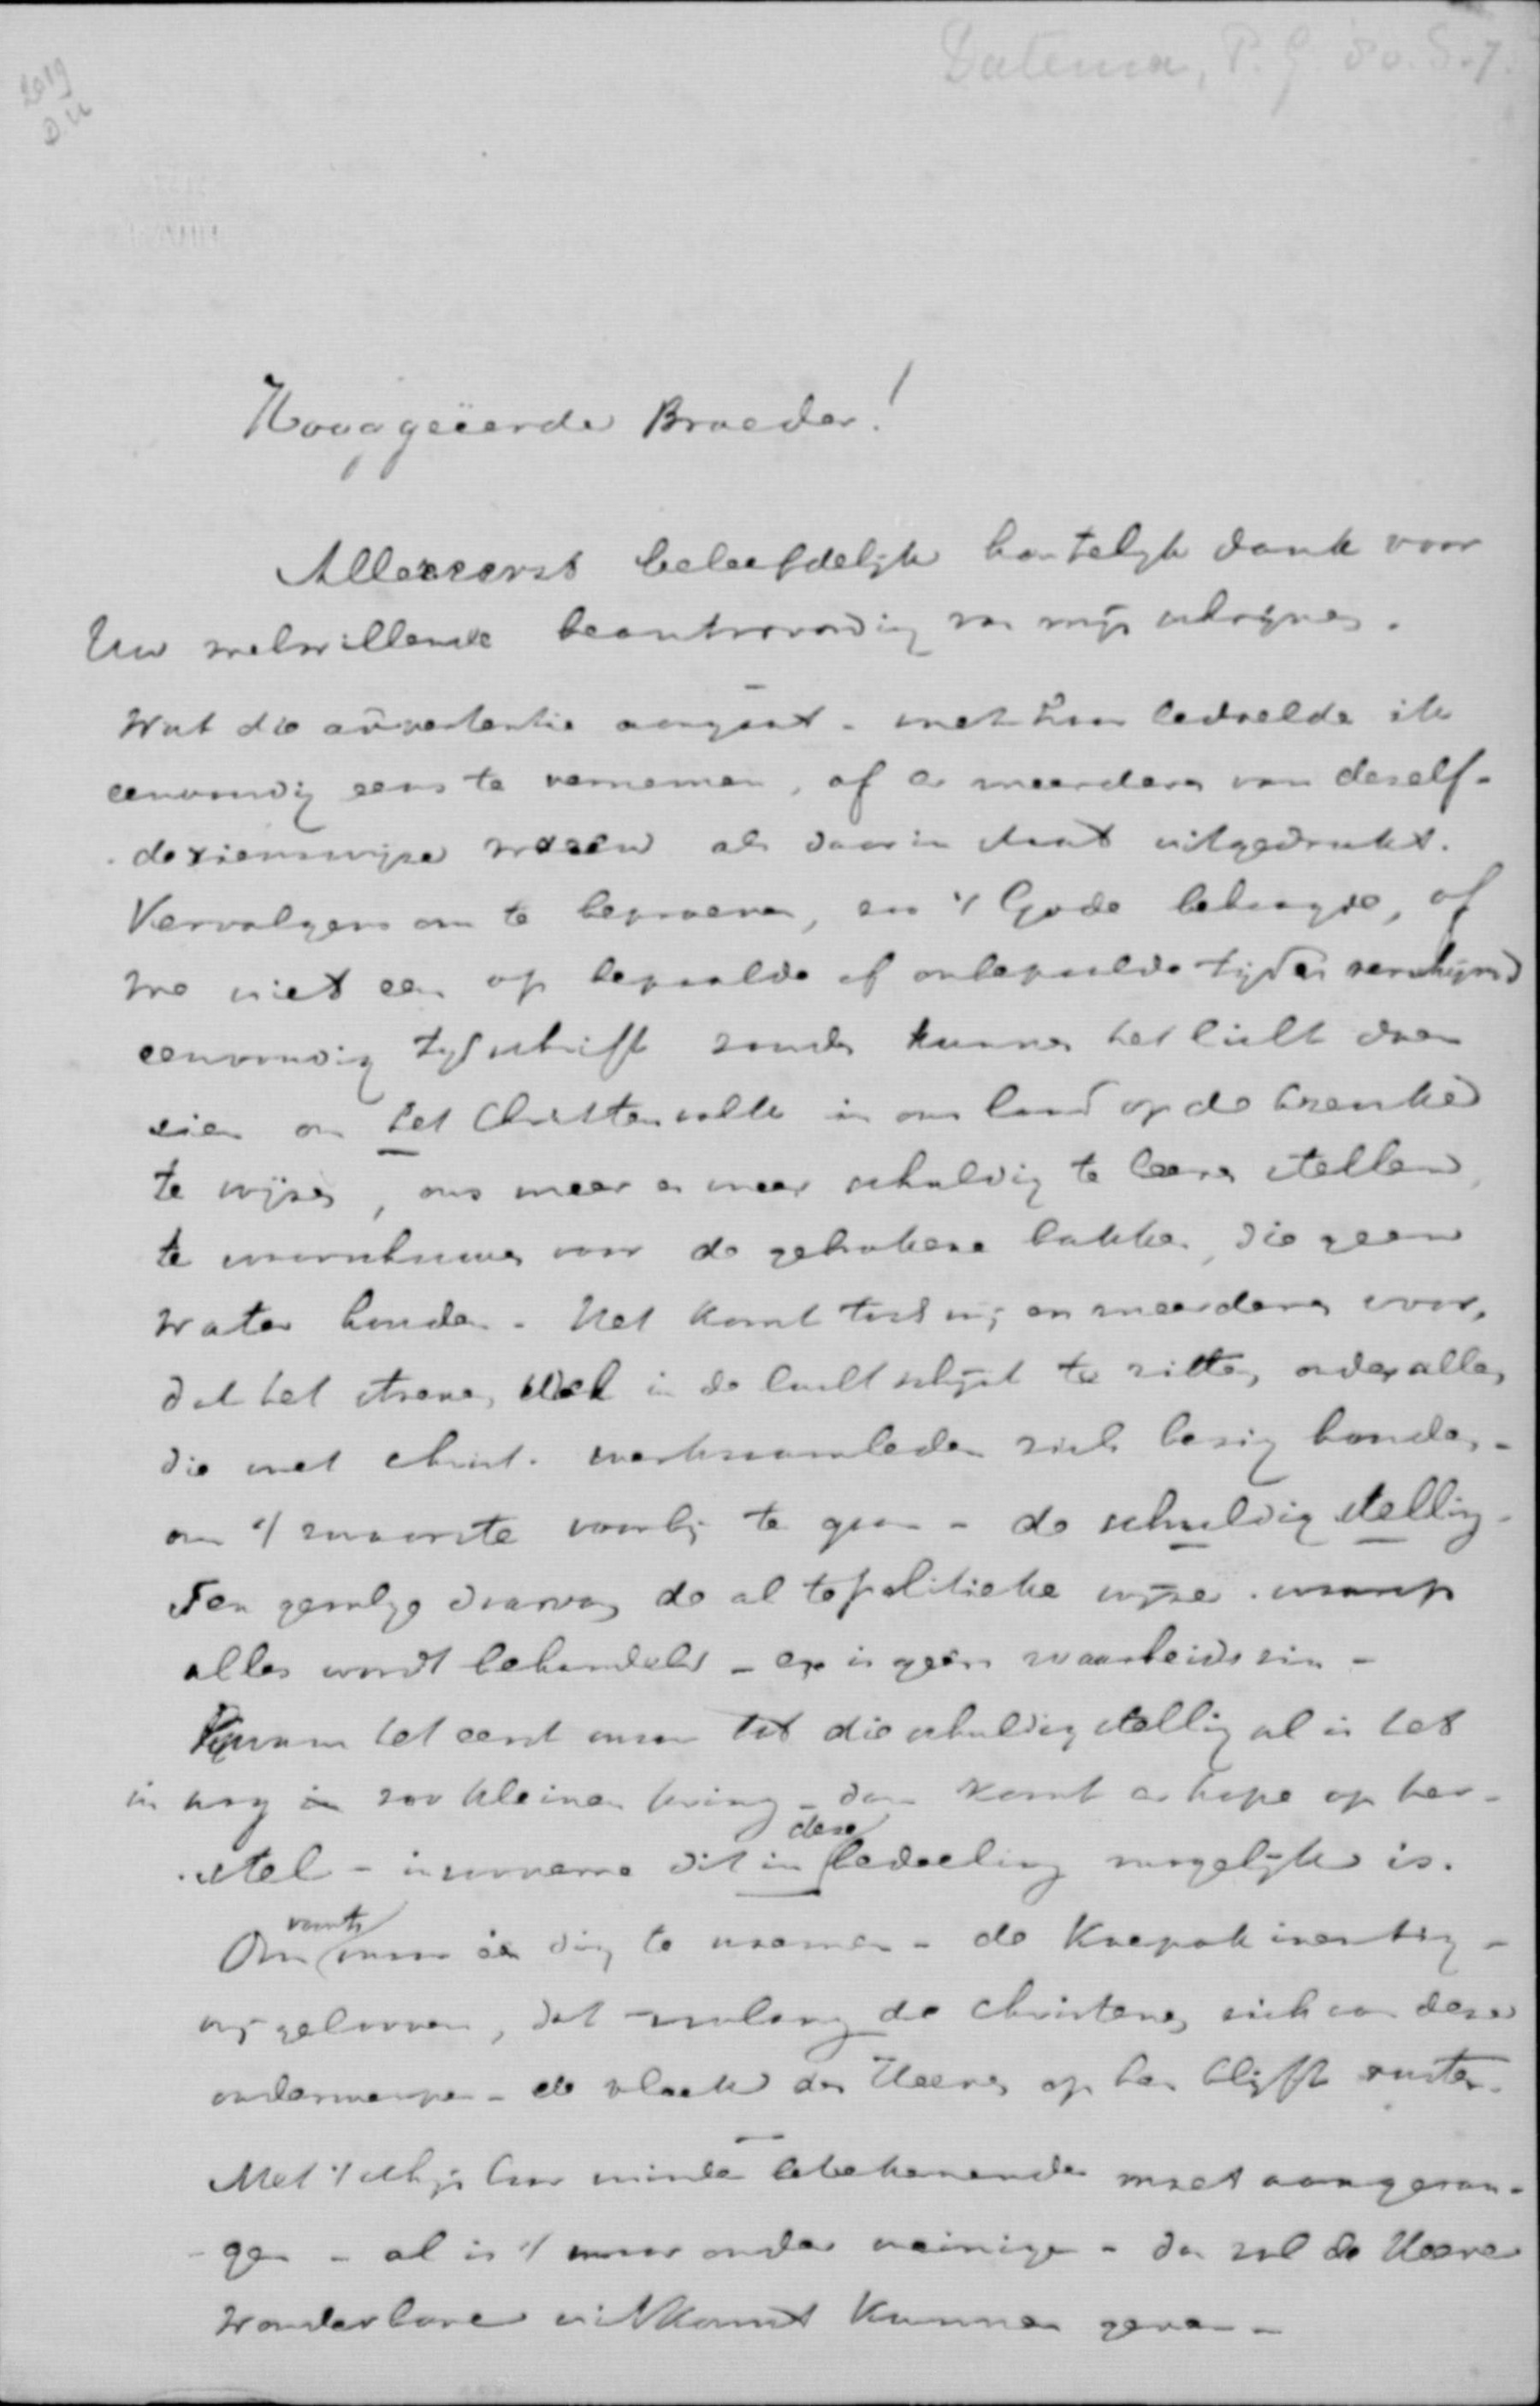 Datema, P. G. 80. S. 7.
2019
D.U
Hooggeëerde Broeder!
Allereerst beleefdelijk hartelijk dank voor
Uw welwillende beantwoording van mijn schrijven.
Wat die advertentie aangaat - met haar bedoelde ik
eenvoudig eens te vernemen, of er meerderen van deself-
de zienswijze waren als daarin staat uitgedrukt.
Vervolgens om te beproeven, zoo 't Gode behaagde, of
we niet een op bepaalde of onbepaalde tijden verschijnend
eenvoudig tijdschrift zouden kunnen het licht doen
zien om het Christenvolk in ons land op de krenke
te wijzen, ons meer en meer schuldig te leeren stellen,
te waarschuwen voor de gebrokene bakken, die geen
water houden. Het komt toch mij en meerderen voor,
dat het streven, in de lucht schijnt te zitten, onder allen,
die met christ. werkzaamheden zich bezig houden -
om 't zwaarste voorbij te gaan - de schuldigstelling -
Ten gevolge daarvan de al te politieke wijze waarop
alles wordt behandeld - er is geen waarheidszin -
Kwam het eerst maar tot die schuldigstelling al is het
in nog zoo kleinen kring - dan komt er hope op her-
stel - in zooverre dit in deze bedeeling mogelijk is.
Om maar één ding te noemen - de Koepokinenting -
wij gelooven, dat zoolang de Christenen zich aan deze
onderwerpen - de vloek des Heeren op hen blijft rusten.
Met 't schijnbaar minder moet aangevan-
gen - al is 't maar onder weinigen - dan zal de Heere
wonderbare uitkomst kunnen geven -